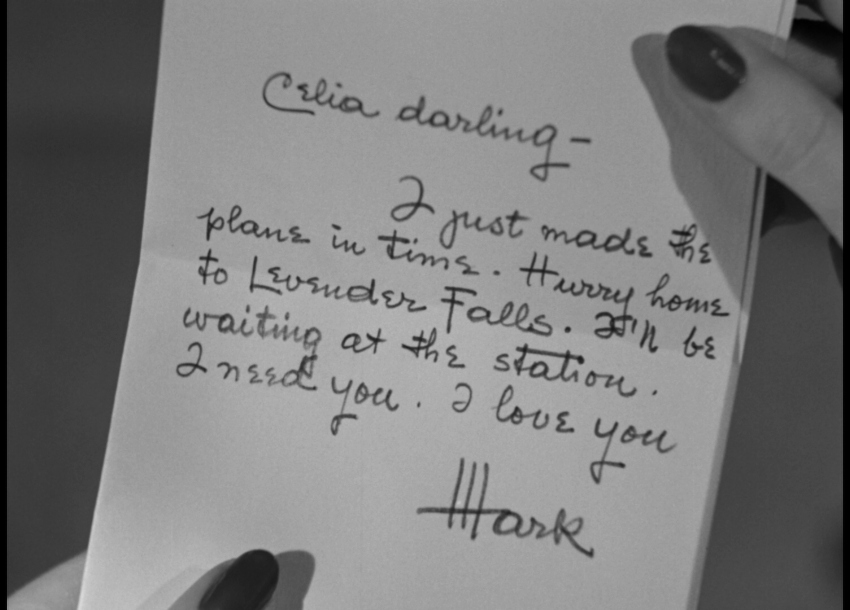 Celia darling -
I just made the
plane in time. Hurry home
to Levender Falls. I'll be
waiting at the station.
I need you. I love you
Mark